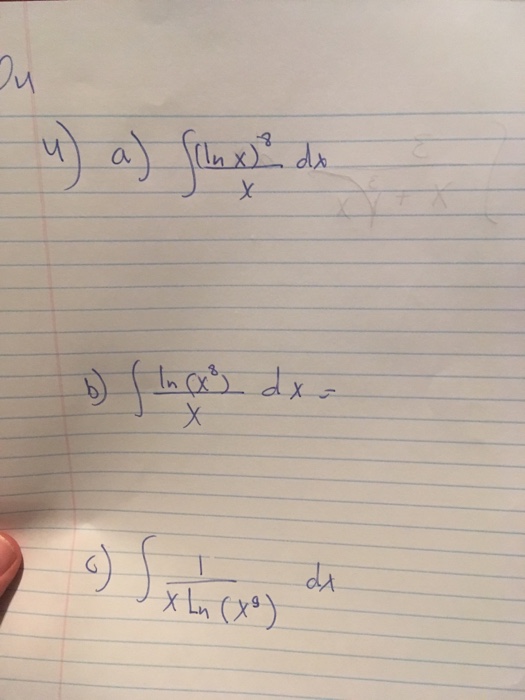 4) a) ∫ (ln x)^8 / x dx
b) ∫ ln(x^8) / x dx =
c) ∫ 1 / (x Ln (x^9)) dx